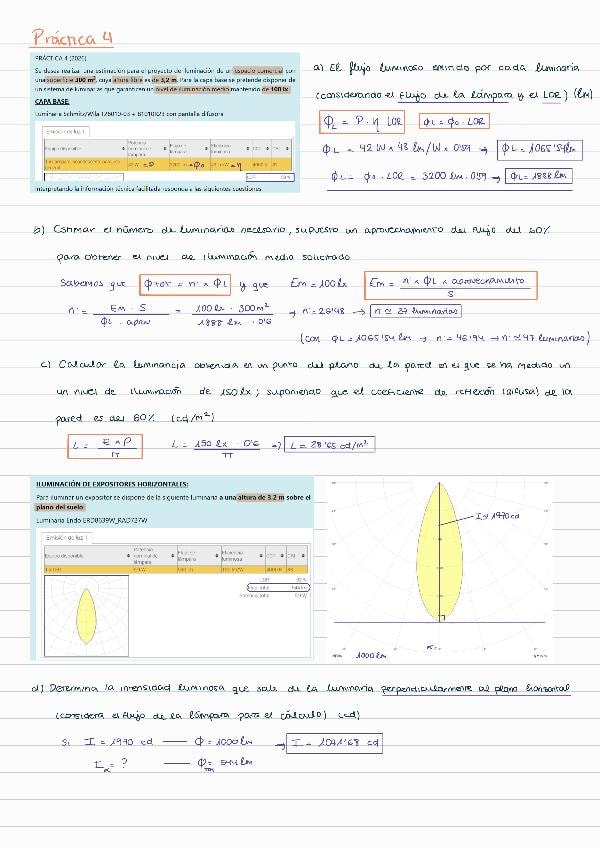 Práctica 4
PRÁCTICA 4 (2020)
Se desea realizar una estimación para el proyecto de iluminación de un espacio comercial con
una superficie 300 m², cuya altura libre es de 3,2 m. Para la capa base se pretende disponer de
un sistema de luminarias que garanticen un nivel de iluminación medio mantenido de 100 lx.
CAPA BASE:
Luminaria Schmitz/Wila 126010-03 + 81010623 con pantalla difusora
Emisión de luz 1
Interpretando la información técnica facilitada responda a las siguientes cuestiones:
a) El flujo luminoso emitido por cada luminaria
(considerando el flujo de la lámpara y el LOR) (lm)
ΦL = P · η · LOR ΦL = Φ0 · LOR
ΦL = 42 W × 43 lm/W × 0'59 → ΦL = 1065'54 lm
ΦL = Φ0 · LOR = 3200 lm · 0'59 → ΦL = 1888 lm
b) Estimar el número de luminarias necesario, supuesto un aprovechamiento del flujo del 60%
para obtener el nivel de iluminación medio solicitado
Sabemos que ΦTOT = n° × ΦL y que Em = 100 lx Em = n° × ΦL × aprovechamiento / S
n° = Em · S / ΦL · aprov = 100 lx · 300 m² / 1888 lm · 0'6 → n = 26'48 → n ≃ 27 luminarias
(con ΦL = 1065'54 lm → n = 46'94 → n ≃ 47 luminarias)
c) Calcular la luminancia obtenida en un punto del plano de la pared en el que se ha medido un
un nivel de iluminación de 150 lx; suponiendo que el coeficiente de reflexión (difusa) de la
pared es del 60% (cd/m²)
L = E × ρ / π L = 150 lx · 0'6 / π ⇒ L = 28'65 cd/m²
ILUMINACIÓN DE EXPOSITORES HORIZONTALES:
Para iluminar un expositor se dispone de la siguiente luminaria a una altura de 3.2 m sobre el
plano del suelo:
Luminaria Endo ERD8639W_RAD727W
Emisión de luz 1
I ≃ 1970 cd
1000 lm
d) Determina la intensidad luminosa que sale de la luminaria perpendicularmente al plano horizontal
(considera el flujo de la lámpara para el cálculo) (cd)
Si I = 1970 cd — Φ = 1000 lm → I = 1071'68 cd
Iα = ? — ΦTOT = 544 lm